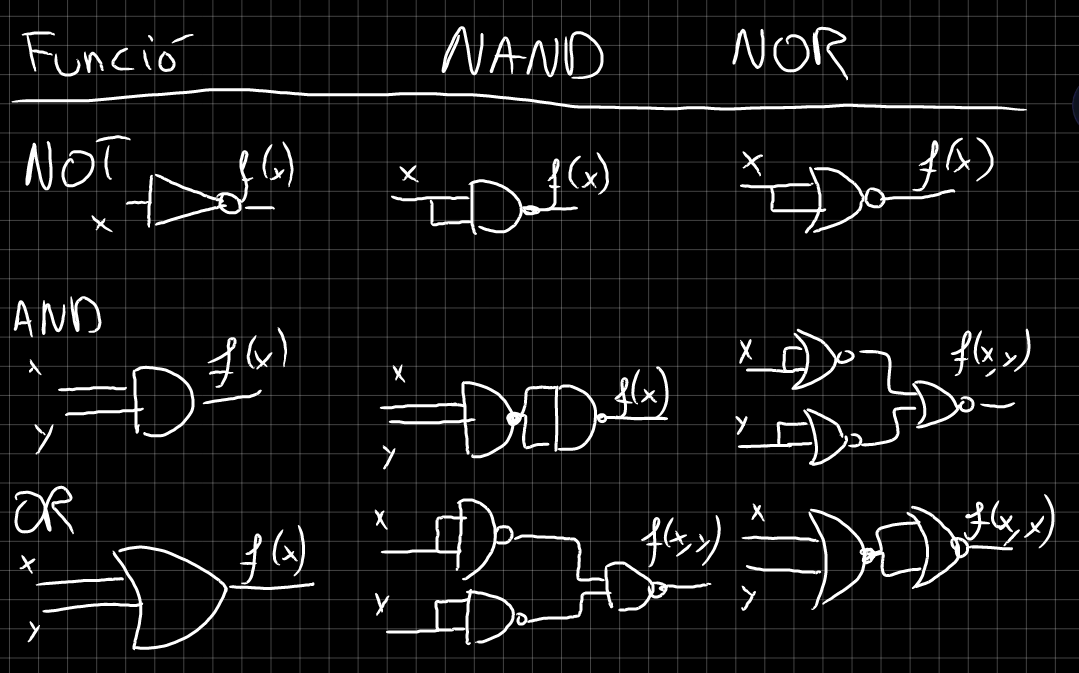 Funció NAND NOR
NOT x f(x) x f(x) x f(x)
AND
x y f(x) x y f(x) x y f(x,y)
OR
x y f(x) x y f(x,y) x y f(x,x)